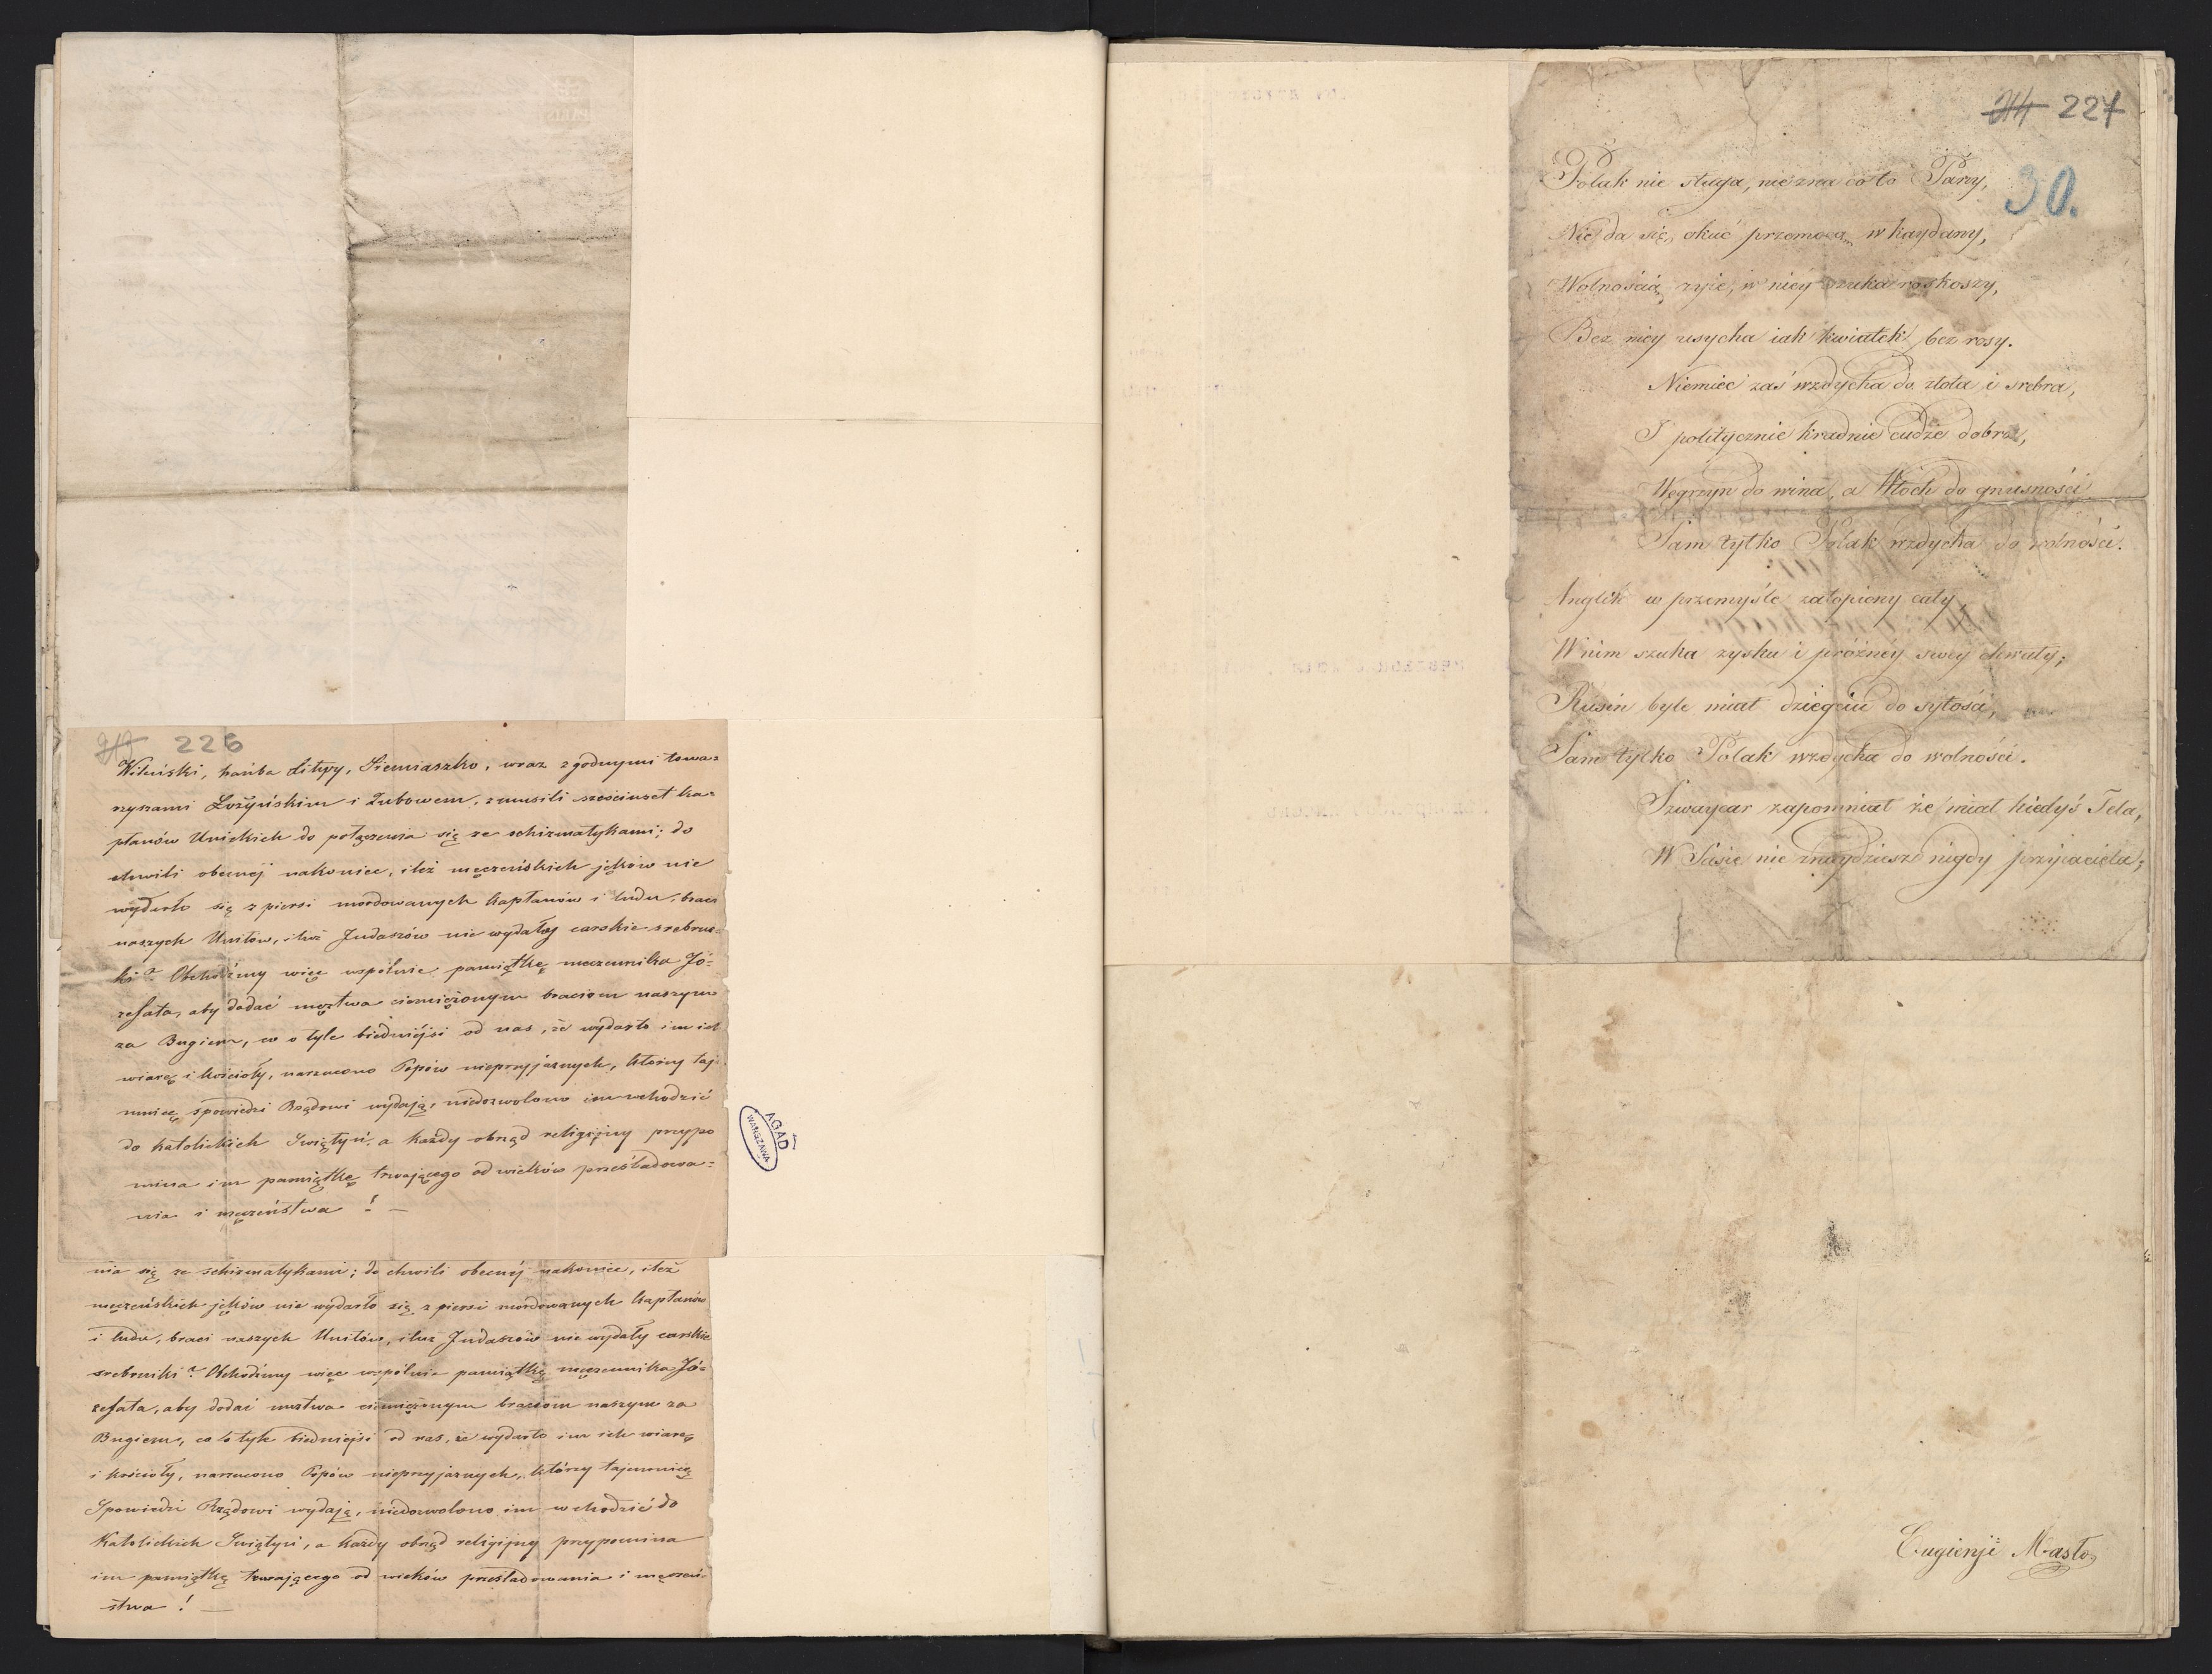 226
Wileński, hańba Litwy, Siemiaszko, wraz z godnymi towa=
rzyszami Łożyńskim i Zubowem, zmusili sześciuset ka=
płanów Unickich do połączenia się ze schizmatykami; do
chwili obecnej nakoniec, ileż męczeńskich jęków nie
wydarło się z piersi mordowanych kapłanów i ludu, braci
naszych Unitów, iluż Judaszów nie wydały carskie srebrni=
ki? Obchodźmy więc wspólnie pamiątkę męczennika Jó=
zefata, aby dodać męztwa ciemiężonym braciom naszym
za Bugiem, co o tyle biedniejsi od nas, że wydarto im ich
wiarę i kościoły, narzucono Popów nieprzyjaznych, którzy taje
mnicę spowiedzi Rządowi wydają, niedozwolono im wchodzić
do katolickich Świątyń, a każdy obrząd religijny przypo
mina im pamiątkę trwającego od wieków prześladowa=
nia i męczeństwa! —
nia się ze schizmatykami; do chwili obecnéj nakoniec, ileż
męczeńskich jęków nie wydarło się z piersi mordowanych kapłanów
i ludu, braci naszych Unitów, iluż Judaszów nie wydały carskie
srebrniki? Obchodźmy więc wspólnie pamiątkę męczennika Jó=
zefata, aby dodać męztwa ciemiężonym braciom naszym za
Bugiem, co o tyle biedniejsi od nas, że wydarto im ich wiarę
i kościoły, narzucono Popów nieprzyjaznych, którzy tajemnicę
Spowiedzi Rządowi wydają, niedozwolono im wchodzić do
Katolickich Świątyń, a każdy obrząd religijny przypomina
im pamiątkę trwającego od wieków prześladowania i męczeń-
stwa! —
AGAD
WARSZAWA
214 227
30.
Polak nie sługa, nie zna co to Pany,
Nie da się okuć przemocą w kaydany,
Wolnością żyie, w niéy szuka roskoszy,
Bez niey usycha iak kwiatek bez rosy.
Niemiec zaś wzdycha do złota i srebra,
I politycznie kradnie cudze dobra,
Węgrzyn do wina, a Włoch do gnusności
Sam tylko Polak wzdycha do wolności.
Anglik w przemyśle zatopiony cały,
W nim szuka zysku i próżnéy swey chwały;
Rusin byle miał dziegciu do sytości,
Sam tylko Polak wzdycha do wolności.
Szwaycar zapomniał że miał kiedyś Tela,
W Sasie nie znaydziesz nigdy przyjaciela;
Eugienji Masło